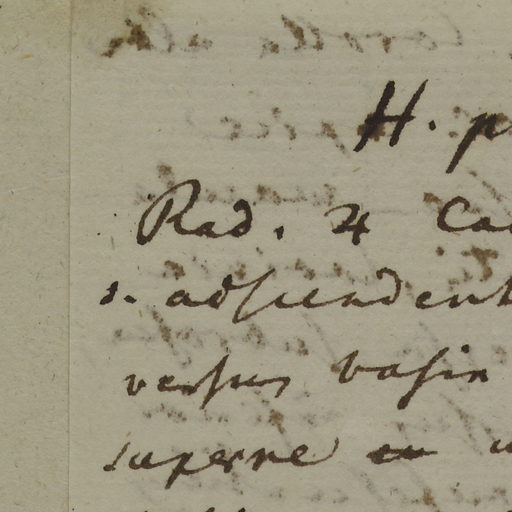 H. p
Rad. ♃ Cau
s. adscendent
versus basin
superne